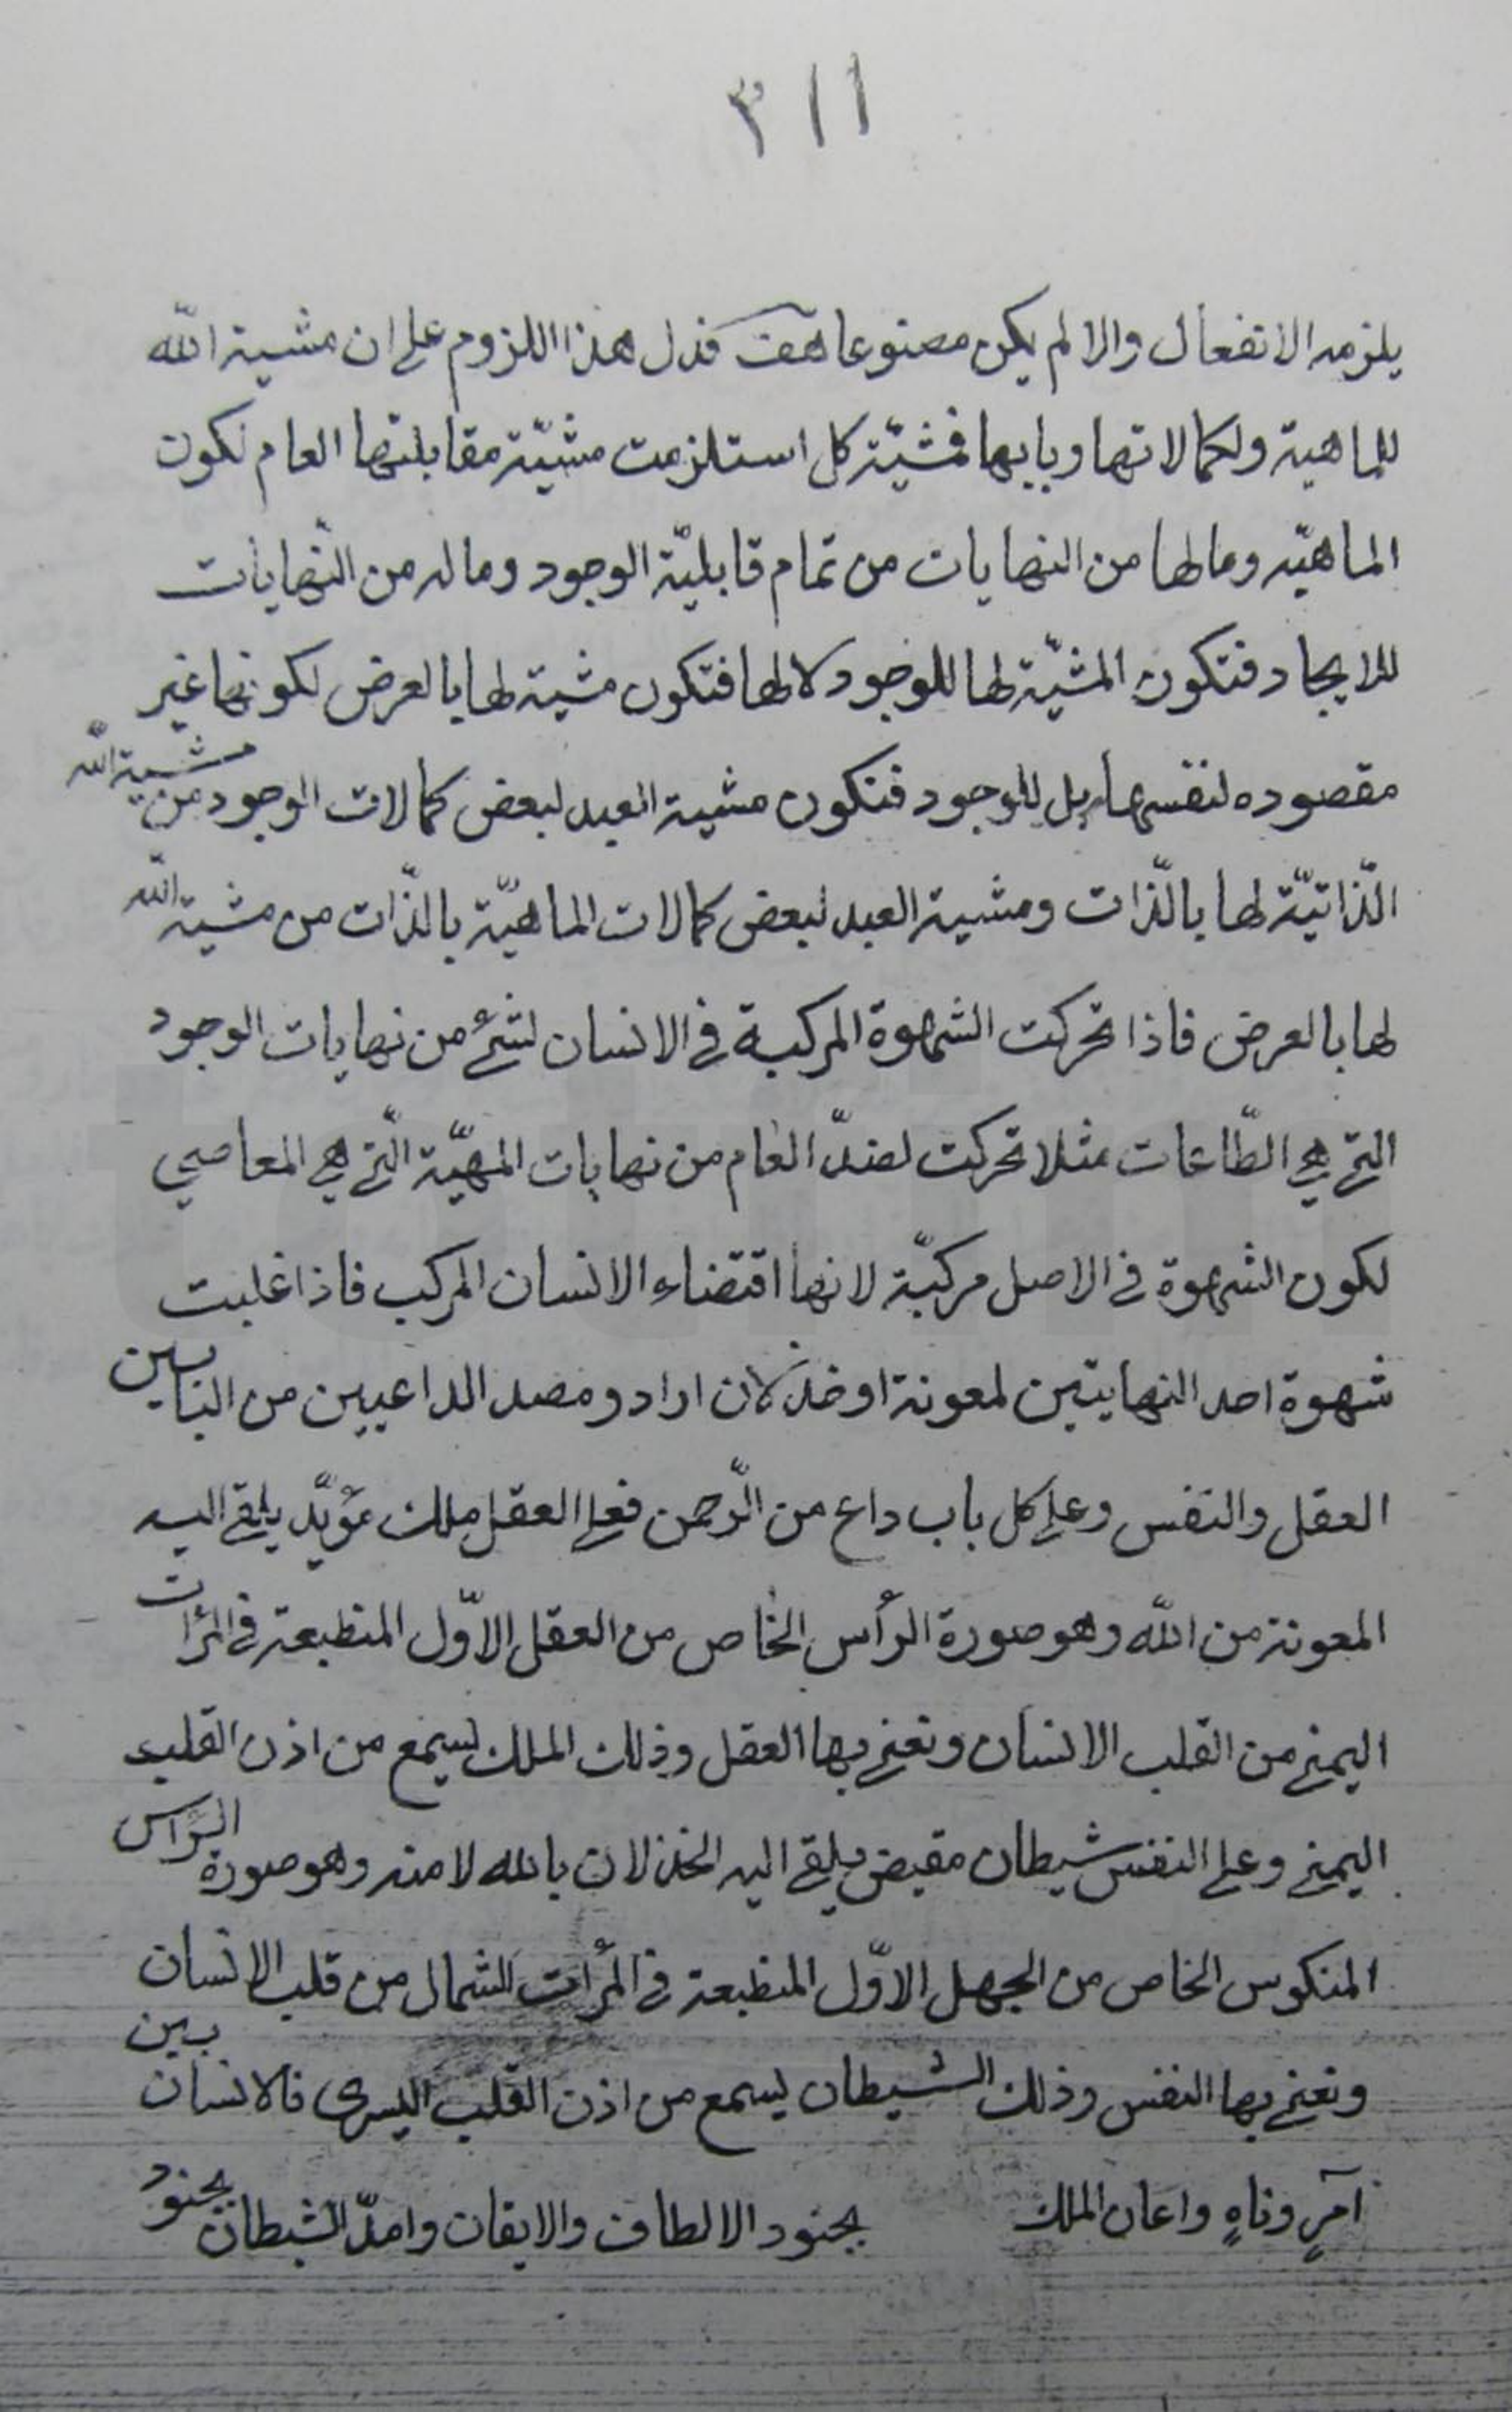 ٣١١
يلزمه الانفعال والا لم يكن مصنوعا هف فدل هذا اللزوم على ان مشية الله
للماهية ولكمالاتها وبابها فمشيّة كل استلزمت مشيّة مقابلتها العام لكون
الماهيّه وما لها من النهايات من تمام قابليّة الوجود وماله من النهايات
للايجاد فتكون المشيّة لها للوجود لا لها فتكون مشية لها بالعرض لكونها غير
مقصوده لنفسها بل للوجود فتكون مشية العبد لبعض كمالات الوجود من مشية الله
الذّاتيّة لها بالذّات ومشية العبد لبعض كمالات الماهيّة بالذّات من مشية الله
لها بالعرض فاذا تحركت الشهوة المركبة في الانسان لشئ من نهايات الوجود
التي هي الطّاعات مثلا تحركت لضدّ العام من نهايات المهيّة الّتي هي المعاصي
لكون الشهوة في الاصل مركبّة لانها اقتضاء الانسان المركب فاذا غلبت
شهوة احد النهايتين لمعونة او خذلان اراد ومصد الداعيين من البابين
العقل والنفس وعلى كل باب داع من الرّحمن فعلى العقل ملك مؤيّد يلقي اليه
المعونة من الله وهو صورة الرأس الخاص من العقل الاوّل المنطبعة في المرآت
اليمني من القلب الانسان ونعني بها العقل وذلك الملك يسمع من اذن القلب
اليمني وعلى النفس شيطان مقيض يلقي اليه الخذلان بالله لا منه وهو صورة الرّاس
المنكوس الخاص من الجهل الاوّل المنطبعة في المرآت الشمال من قلب الانسان
ونعني بها النفس وذلك الشيطان يسمع من اذن القلب اليسرى فالانسان بين
آمرٍ وناهٍ واعان الملك بجنود الالطاف والايقان وامدّ الشيطان بجنود